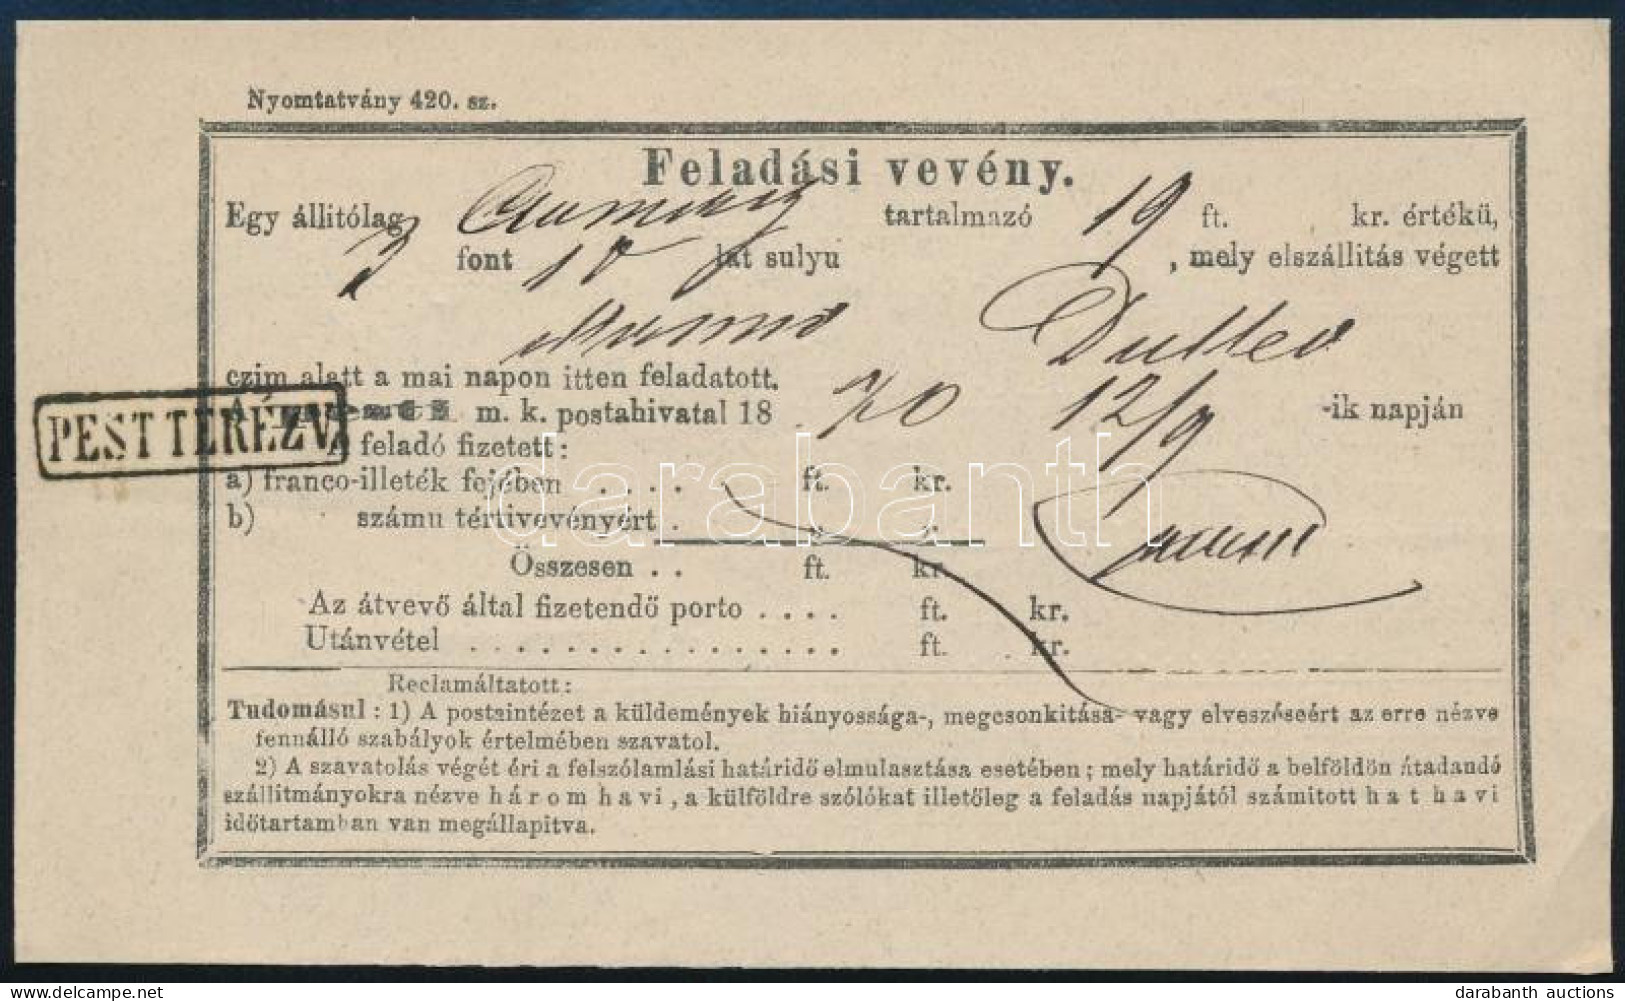 Nyomtatvány 420. sz.
Feladási vevény.
Egy állitólag tartalmazó 19 ft. kr. értékü,
font 10 lat sulyu , mely elszállitás végett
czim alatt a mai napon itten feladatott.
A m. k. postahivatal 18 70 12/9 -ik napján
PEST TERÉZV.
A feladó fizetett:
a) franco-illeték fejében .... ft. kr.
b) számu tértivevényért .
Összesen .. ft. kr.
Az átvevő által fizetendő porto .... ft. kr.
Utánvétel ................ ft. kr.
Reclamáltatott:
Tudomásul: 1) A postaintézet a küldemények hiányossága-, megcsonkitása- vagy elveszéseért az erre nézve
fennálló szabályok értelmében szavatol.
2) A szavatolás végét éri a felszólamlási határidő elmulasztása esetében; mely határidő a belföldön átadandó
szállitmányokra nézve három havi, a külföldre szólókat illetőleg a feladás napjától számitott hat havi
időtartamban van megállapitva.
darabanth
darabanth auctions
delcampe.net